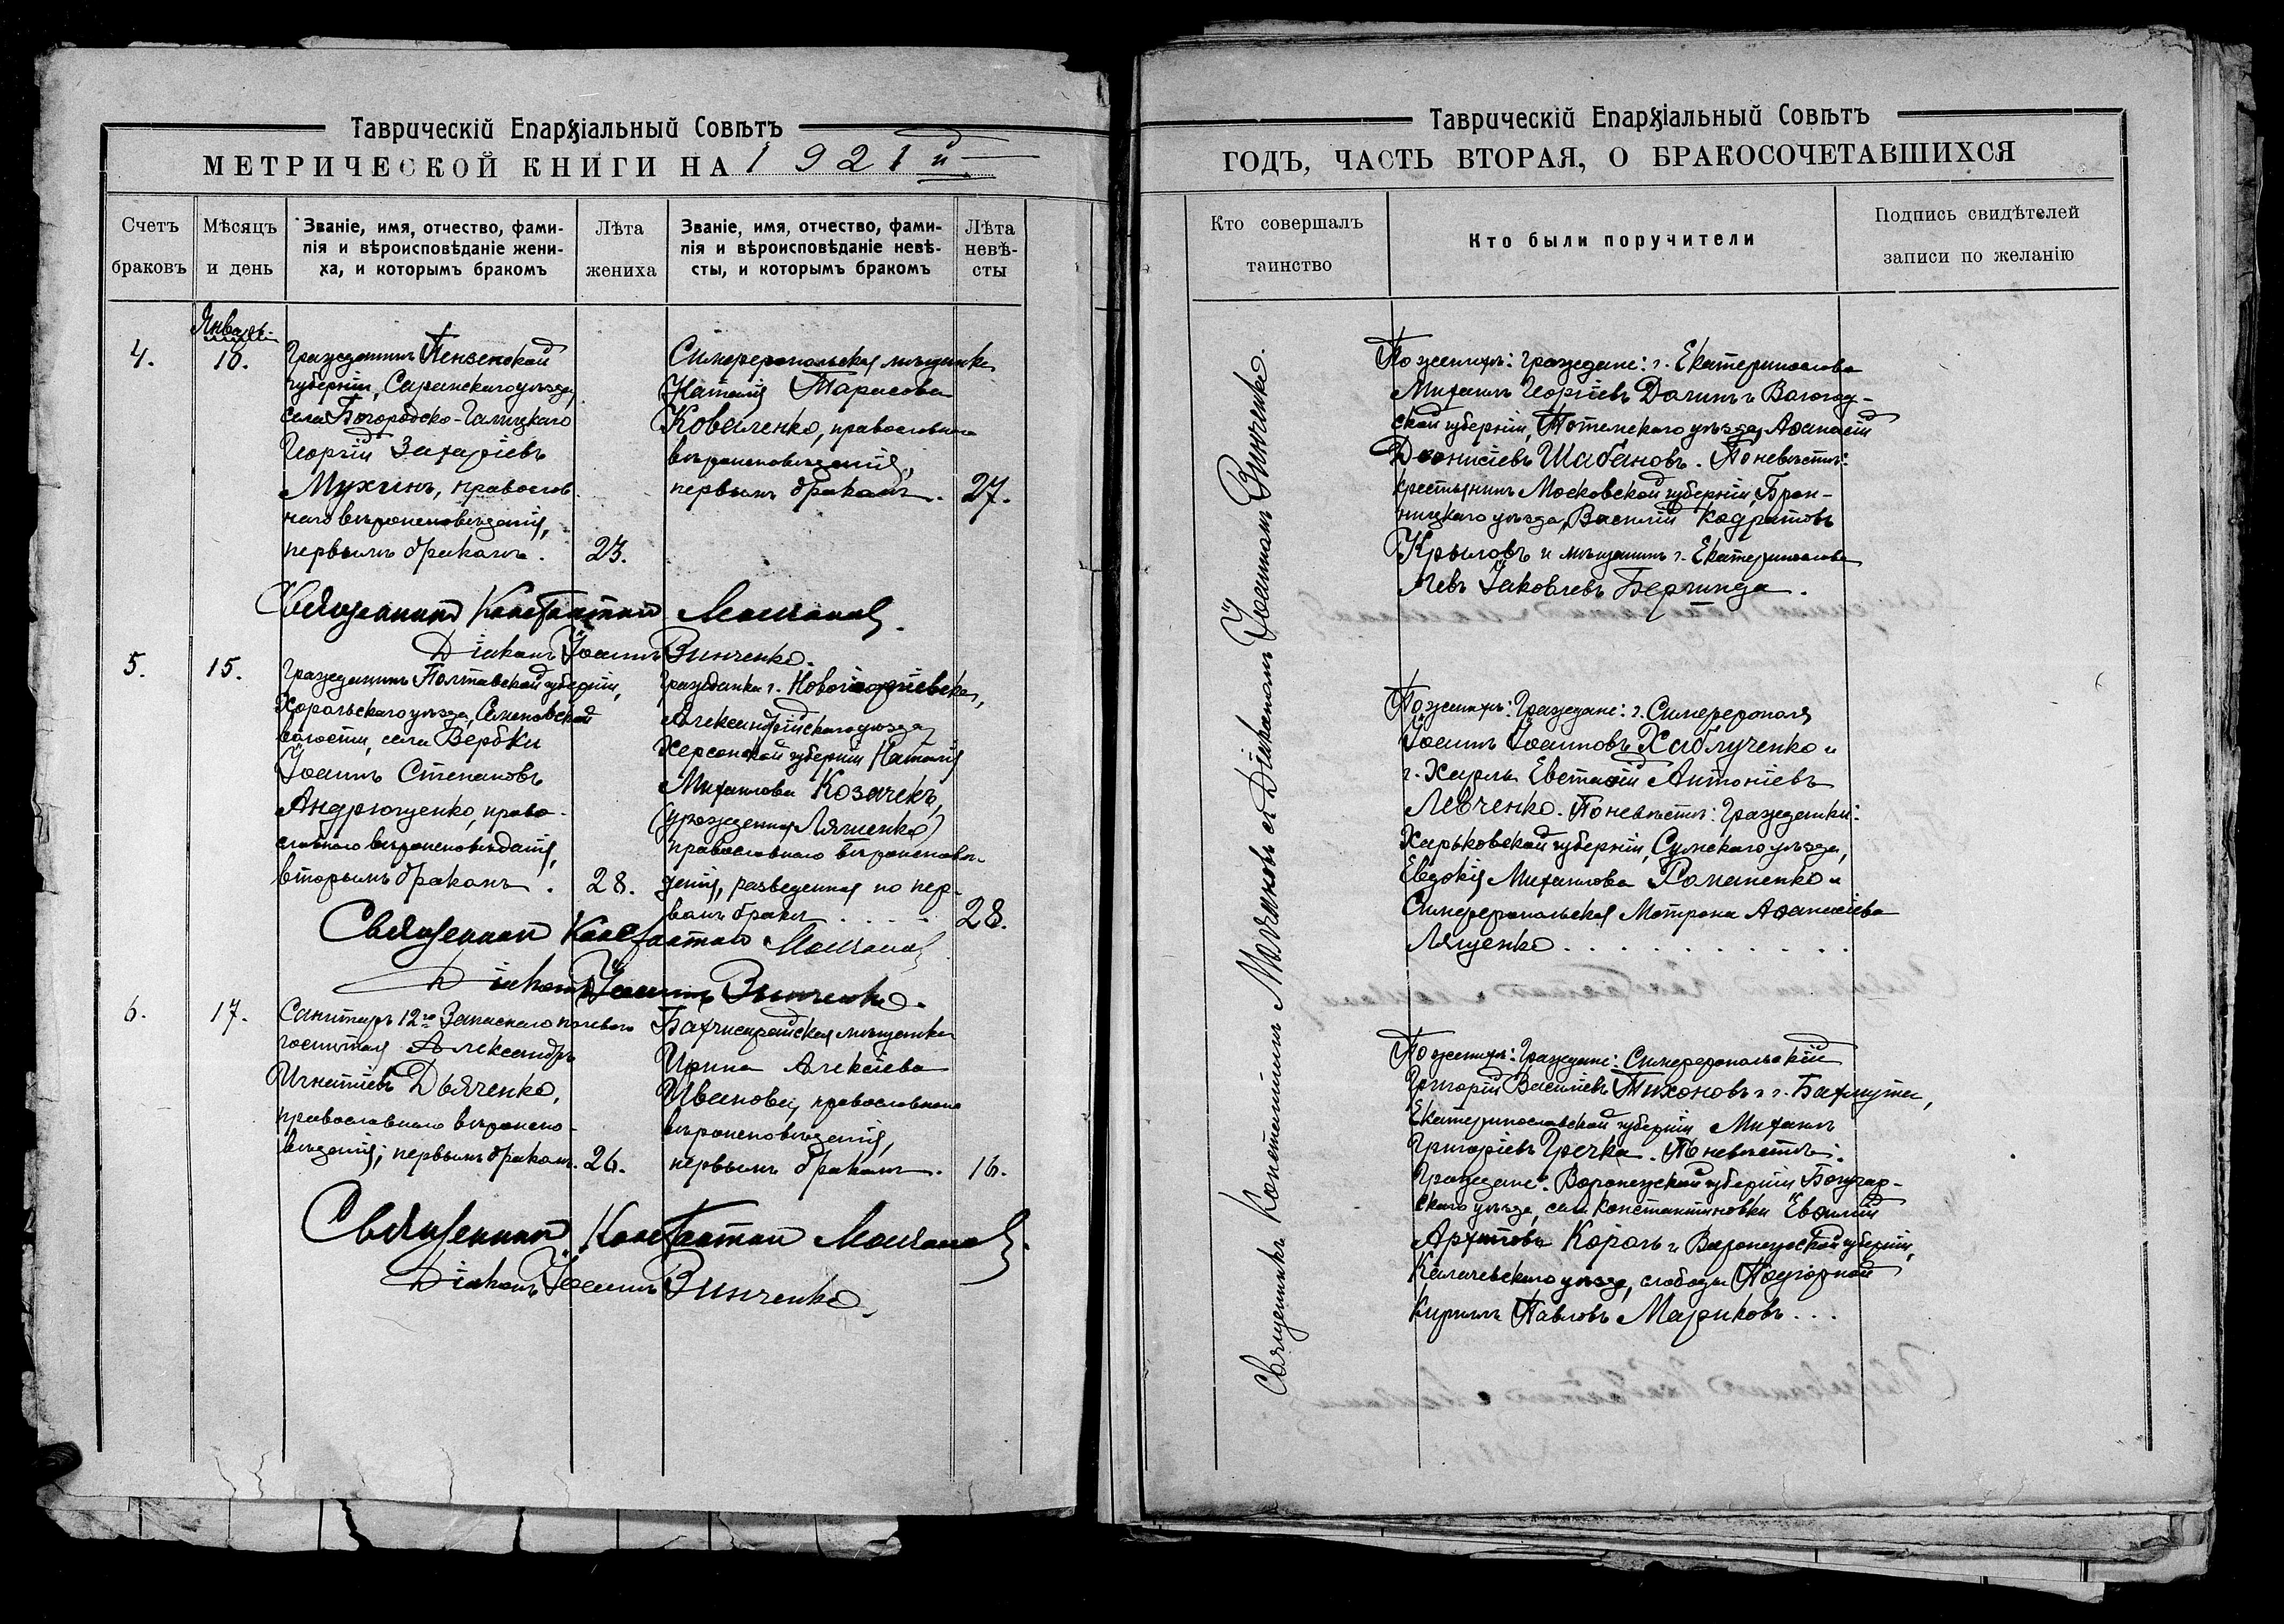 Таврическій Епархіальный Совѣтъ
МЕТРИЧЕСКОЙ КНИГИ НА 1921 й
Счетъ браковъ
Мѣсяцъ и день
Званіе, имя, отчество, фами-
лія и вѣроисповѣданіе жени-
ха, и которымъ бракомъ
Лѣта жениха
Званіе, имя, отчество, фами-
лія и вѣроисповѣданіе невѣ-
сты, и которымъ бракомъ
Лѣта
невѣ-
сты
Январь
4.
10.
Гражданинъ Пензенской
губерніи, Саранскаго уѣзда,
села Богородско-Голицкаго
Георгій Захаріевъ
Мухинъ, православ-
наго вѣроисповѣданія,
первымъ бракомъ.
23.
Симферопольская мѣщанка
Наталія Тарасова
Коваленко, православнаго
вѣроисповѣданія,
первымъ бракомъ.
27.
Священникъ Константинъ Молчановъ.
Діаконъ Іоаннъ Винченко.
5.
15.
Гражданинъ Полтавской губерніи,
Хорольскаго уѣзда, Семеновской
волости, села Вербки
Іоаннъ Степановъ
Андрющенко, право-
славнаго вѣроисповѣданія,
вторымъ бракомъ.
28.
Гражданка г. Новогеоргіевска,
Александрійскаго уѣзда,
Херсонской губерніи Наталія
Михаилова Козачекъ,
(урожденная Лященко)
православнаго вѣроисповѣ-
данія, разведенная по пер-
вомъ бракѣ . . . .
28.
Священникъ Константинъ Молчановъ
Діаконъ Іоаннъ Винченко.
6.
17.
Санитаръ 12го Запаснаго полевого
госпиталя Александръ
Игнатіевъ Дьяченко,
православнаго вѣроиспо-
вѣданія; первымъ бракомъ.
26.
Бахчисарайская мѣщанка
Ирина Алексіева
Иванова, православнаго
вѣроисповѣданія,
первымъ бракомъ.
16.
Священникъ Константинъ Молчановъ.
Діаконъ Іоаннъ Винченко.
Таврическій Епархіальный Совѣтъ
ГОДЪ, ЧАСТЬ ВТОРАЯ, О БРАКОСОЧЕТАВШИХСЯ
Кто совершалъ
таинство
Кто были поручители
Подпись свидѣтелей
записи по желанію
Священникъ Константинъ Молчановъ съ Діакономъ Іоанномъ Винченко.
По женихѣ: граждане: г. Екатеринослава
Михаилъ Георгіевъ Долинъ и Вологод-
ской губерніи, Тотемскаго уѣзда, Аѳанасій
Діонисіевъ Шабановъ. По невѣстѣ:
крестьянинъ Московской губерніи, Брон-
ницкаго уѣзда, Василій Кодратовъ
Крыловъ и мѣщанинъ г. Екатеринослава
Левъ Іаковлевъ Берлинда.
По женихѣ: Граждане: г. Симферополя
Іоаннъ Іоанновъ Хаблученко и
г. Хорола Евстафій Антоніевъ
Левченко. По невѣстѣ: Гражданки:
Харьковской губерніи, Сумскаго уѣзда,
Евдокія Михаилова Романенко и
Симферопольская Мотрона Аѳанасіева
Лященко . . . . . . . . .
По женихѣ: Граждане: Симферопольскій
Григорій Василіевъ Тихоновъ и г. Бахмута,
Екатеринославской губерніи Михаилъ
Григоріевъ Гречка. По невѣстѣ:
Граждане: Воронежской губерніи Богучар-
скаго уѣзда, села Константиновки
Архиповъ Король и Воронежской губерніи,
Калачевскаго уѣзда, слободы Подгорной
Кириллъ Павловъ Мариковъ . . .